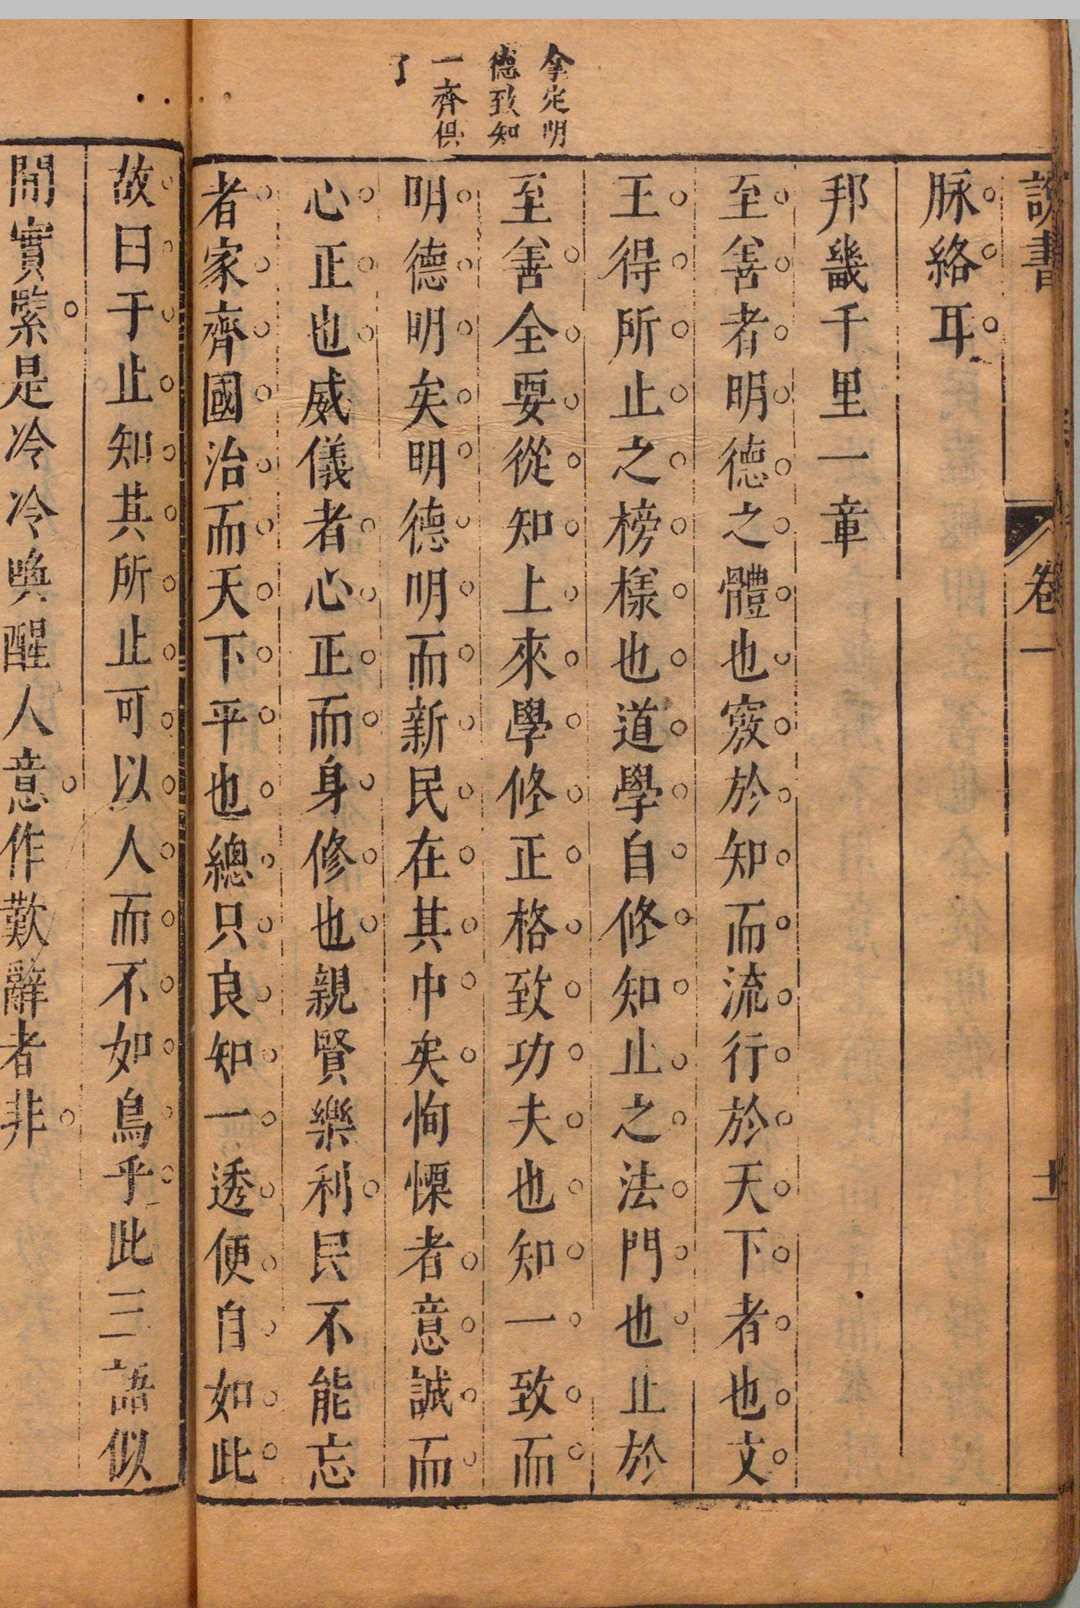 說書
卷一
十一
脉絡耳
邦畿千里一章
至善者明德之體也竅於知而流行於天下者也文
王得所止之榜樣也道學自修知止之法門也止於
至善全要從知上來學修正格致功夫也知一致而
明德明矣明德明而新民在其中矣恂慄者意誠而
心正也威儀者心正而身修也親賢樂利民不能忘
者家齊國治而天下平也總只良知一透便自如此
拿定明
德致知
一齊俱
了
故曰于止知其所止可以人而不如鳥乎此三語似
閒實緊是冷冷喚醒人意作歎辭者非